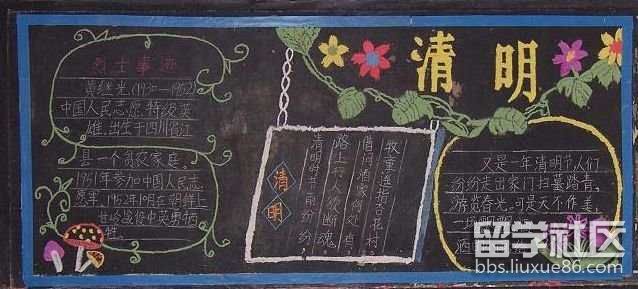 清明
烈士事迹
黄继光
中国人民志愿特级英
雄.出生于四川省江
县一个贫农家庭.
1951年参加中国人民志
愿军.1952年明在朝鲜上
甘岭战役中英勇牺
牲
清明
清明时节雨纷纷
路上行人欲断魂
借问酒家何处有
牧童遥指杏花村
又是一年清明节人们
纷纷走出家门扫墓踏青,
游览春光,可是天不作美,
酒
留学社区
bbs.liuxue86.com